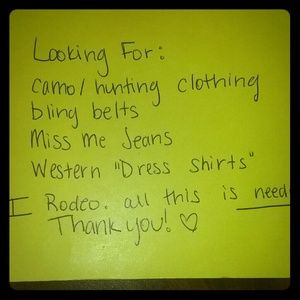 Looking For:
camo/hunting clothing
bling belts
Miss Me Jeans
Western "Dress shirts"
I Rodeo. all this is need
Thank you! ♡